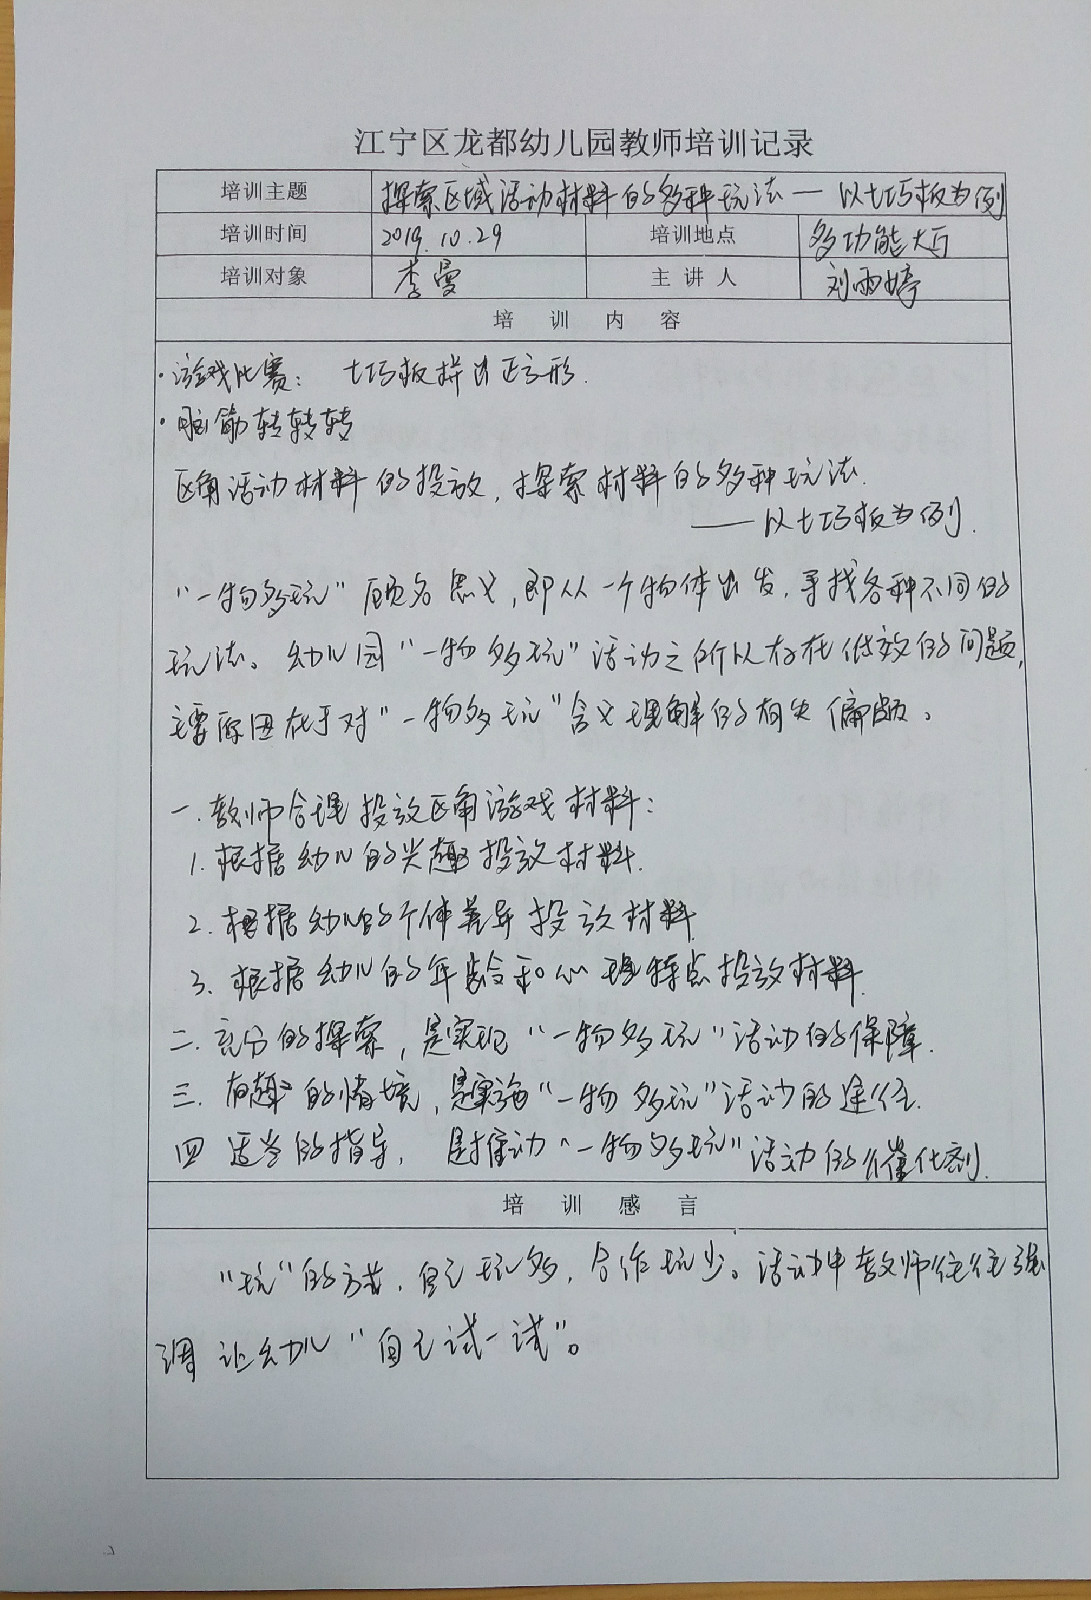 江宁区龙都幼儿园教师培训记录
培训主题 探索区域活动材料的多种玩法 — 以七巧板为例
培训时间 2019.10.29 培训地点 多功能大厅
培训对象 李曼 主讲人 刘雨婷
培训内容
·游戏比赛：七巧板拼出正方形.
·脑筋转转转
区角活动材料的投放，探索材料的多种玩法.
——以七巧板为例.
“一物多玩”顾名思义，即从一个物体出发，寻找各种不同的
玩法。幼儿园“一物多玩”活动之所以存在低效的问题，
主要原因在于对“一物多玩”含义理解的有失偏颇。
一.教师合理投放区角游戏材料：
1.根据幼儿的兴趣投放材料.
2.根据幼儿的个体差异投放材料
3.根据幼儿的年龄和心理特点投放材料.
二.充分的探索，是实现“一物多玩”活动的保障.
三.有趣的情境，是实施“一物多玩”活动的途径.
四 适当的指导，是推动“一物多玩”活动的催化剂.
培训感言
“玩”的方式，自己玩多，合作玩少。活动中教师往往强
调让幼儿“自己试一试”。